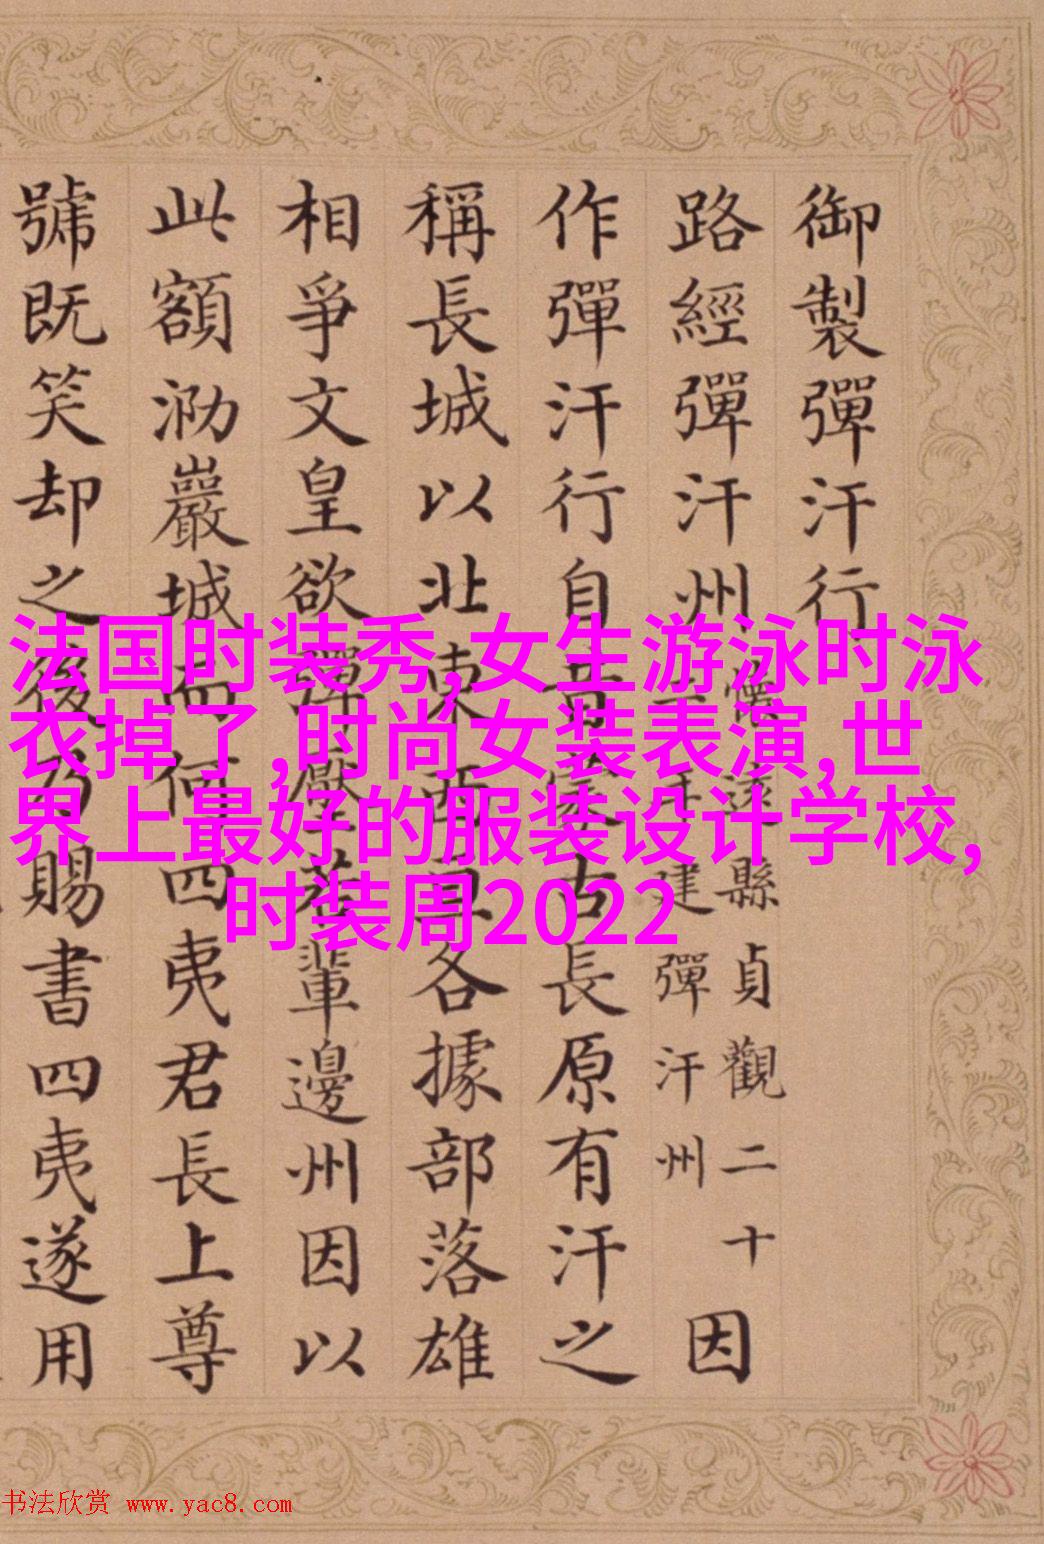 御製彈汗行
路經彈汗州
懷遠縣貞觀二十
三年建彈汗州
因
作彈汗行自昔蒙古長原有汗之
稱長城以北東西各據部落雄
相爭文皇欲彈壓若輩邊州因以
此額泐巖城而何四夷君長上尊
號既笑却之後乃賜書四夷遂用
法国时装秀,女生游泳时泳
衣掉了,时尚女装表演,世
界上最好的服装设计学校,
时装周2022
书法欣赏 www.yac8.com